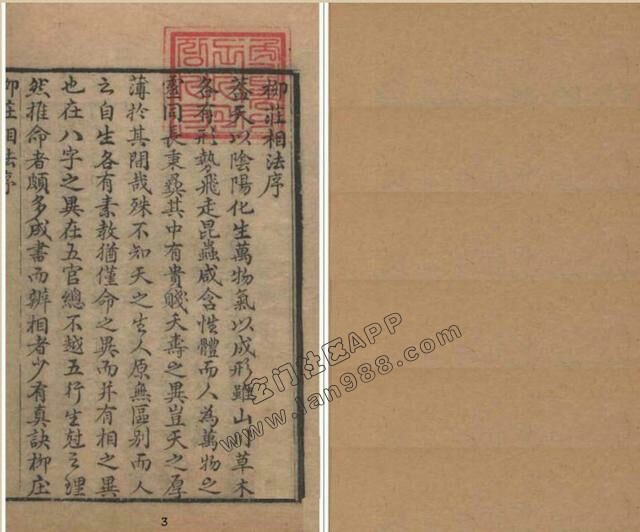 柳莊相法序
蓋天以陰陽化生萬物氣以成形雖山川草木
各有形勢飛走昆蟲咸含性體而人為萬物之
靈同長秉彝其中有貴賤夭壽之異豈天之厚
薄於其間哉殊不知天之生人原無區别而人
云自生各有素教猶僅命之異而并有相之異
也在八字之異在五官總不越五行生尅之理
然推命者頗多成書而辨相者少有真訣柳庄
柳莊相法序
3
玄门社区APP
www.lan988.com